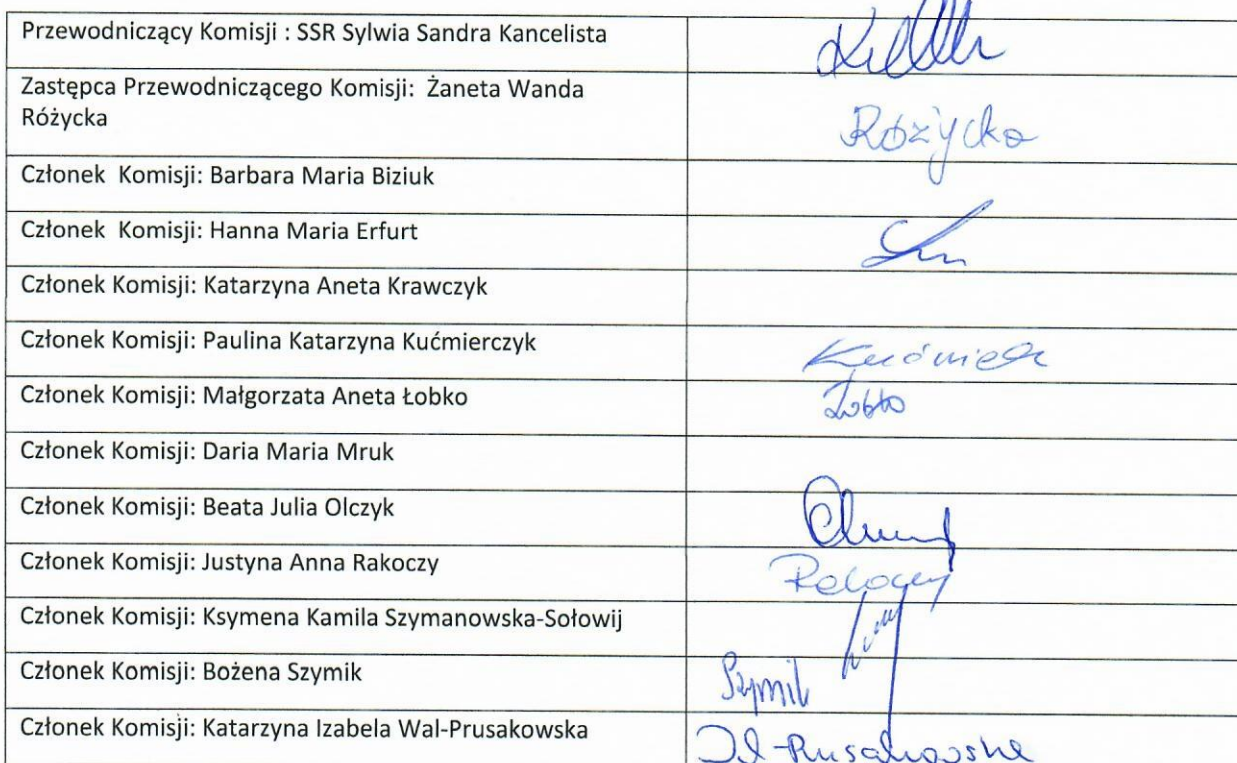 Przewodniczący Komisji : SSR Sylwia Sandra Kancelista
Zastępca Przewodniczącego Komisji: Żaneta Wanda
Różycka
Różycka
Członek Komisji: Barbara Maria Biziuk
Członek Komisji: Hanna Maria Erfurt
Członek Komisji: Katarzyna Aneta Krawczyk
Członek Komisji: Paulina Katarzyna Kućmierczyk
Członek Komisji: Małgorzata Aneta Łobko
Łobko
Członek Komisji: Daria Maria Mruk
Członek Komisji: Beata Julia Olczyk
Członek Komisji: Justyna Anna Rakoczy
Członek Komisji: Ksymena Kamila Szymanowska-Sołowij
Członek Komisji: Bożena Szymik
Szymik
Członek Komisji: Katarzyna Izabela Wal-Prusakowska